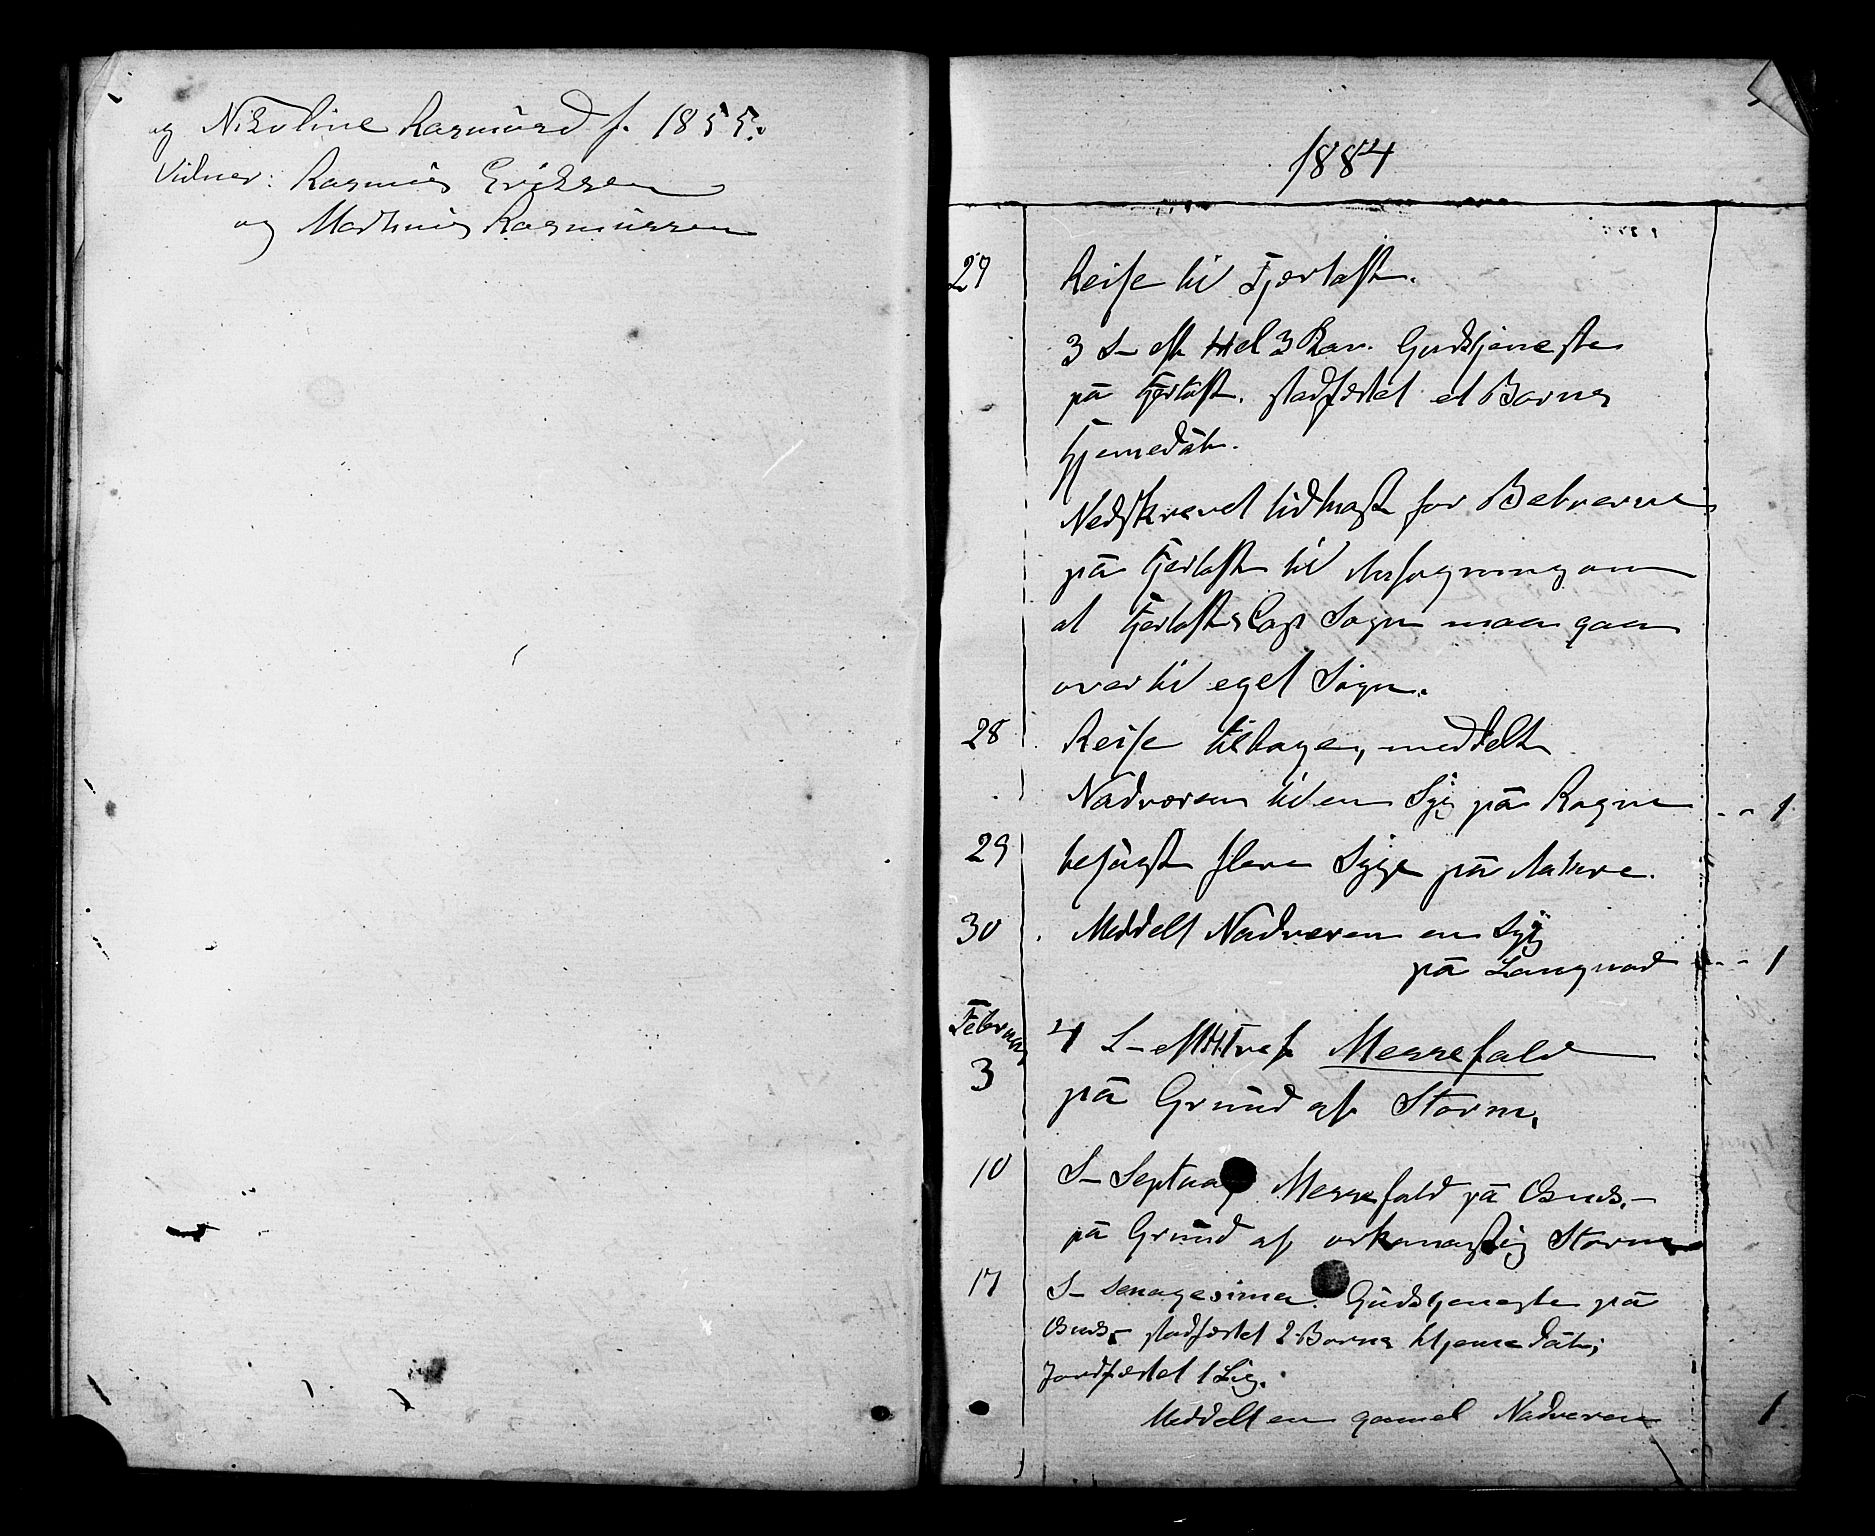 og Nikoline Rasmusd f. 1855.
Vidner: Rasmus Eriksen
og Mathias Rasmussen
1884
27 Reise til Fjærtoft.
3 S– eft Hel 3 Kon. Gudstjeneste
på Fjertoft. stadfæstet et Barns
Hjemedåb.
Nedskrevet Udkast for Beboerne
på Fjertoft til Ansøgning om
at Fjertofts Cap Sogn maa gaa
over til eget Sogn.
28 Reise tilbage, meddelt
Nadveren til en Syg på Rogne - - 1
29 besøgt flere Syge på Aakre.
30 Meddelt Nadveren en Syg
på Langnad - - 1
Februar
3 4 S– eft H Tre K Messefald
på Grund af Storm.
10 S– Septuag Messefald på Bruds.–
på Grund af orkanagtig Storm
17 S– sexagesima. Gudstjeneste på
Bruds– stadfæstet 2 Barns Hjemedåb;
Jordfæstet 1 Lig.
Meddelt en gammel Nadveren 1